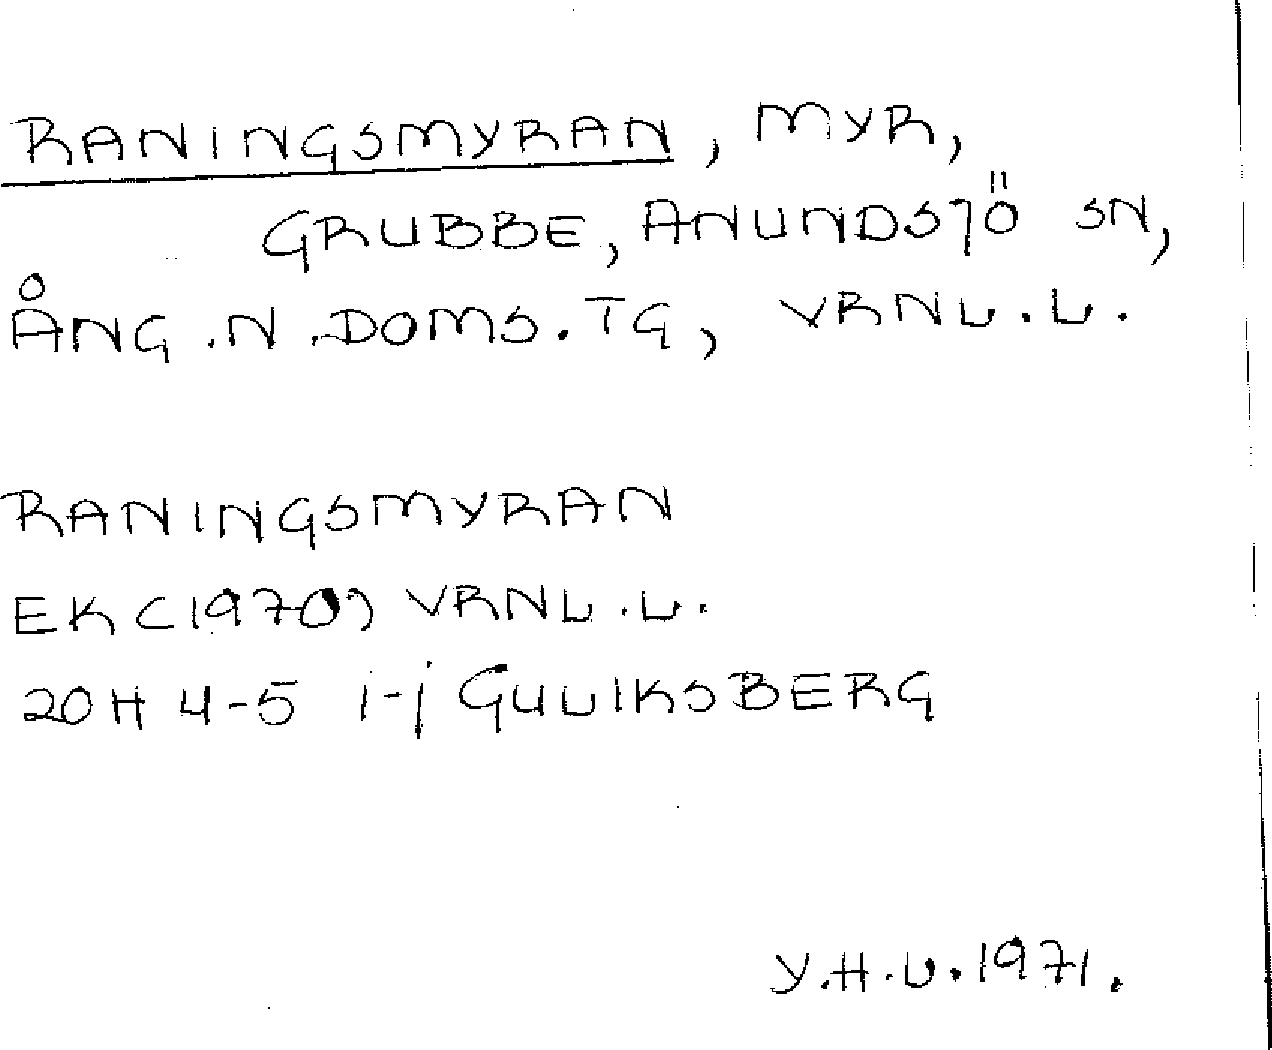 RANINGSMYRAN, MYR,
GRUBBE, ANUNDSJÖ SN,
ÅNG.N.DOMS.TG, VRNL.L.
RANINGSMYRAN
EK (1970) VRNL.L.
20H 4-5 i-j GULIKSBERG
Y.H.L. 1971.